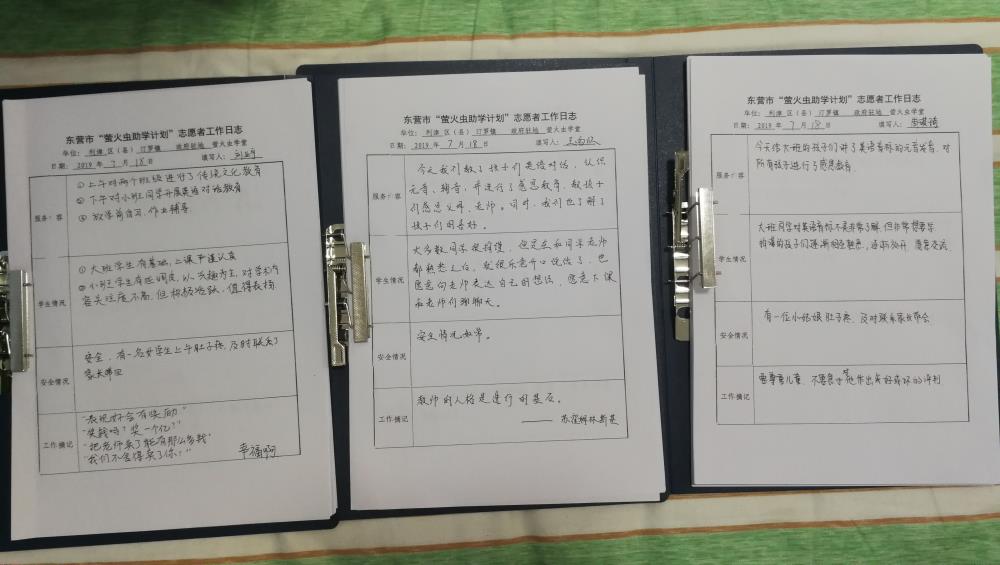 东营市“萤火虫助学计划”志愿者工作日志
单位：利津 区（县）汀罗镇 政府驻地 萤火虫学堂
日期：2019 年 7 月 18 日 填写人：
服务内容
①上午对两个班级进行了传统文化教育
②下午对小班同学开展英语对话教育
③放学前自习、作业辅导
学生情况
①大班学生有基础，上课严谨认真
②小班学生有些调皮，以兴趣为主，对学习内
容关注度不高，但积极活跃，值得表扬
安全情况
安全，有一名女学生上午肚子疼，及时联系了
家长带回
工作摘记
“表现好会有奖励”
“奖钱吗？奖一个亿？”
“把老师卖了能有那么多钱”
“我们不舍得卖了你！”
幸福啊
东营市“萤火虫助学计划”志愿者工作日志
单位：利津 区（县）汀罗镇 政府驻地 萤火虫学堂
日期：2019 年 7 月 18 日 填写人：
服务内容
今天我们教了孩子们英语对话，认识
元音、辅音，并进行了感恩教育，教孩子
们感恩父母、老师。同时，我们也了解了
孩子们的喜好。
学生情况
大多数同学很拘谨，但是在和同学老师
都熟悉之后，就很乐意开口说话了，也
愿意向老师表达自己的想法，愿意下课
和老师们聊聊天。
安全情况
安全情况如常。
工作摘记
教师的人格是进行的基石。
—— 苏霍姆林斯基
东营市“萤火虫助学计划”志愿者工作日志
单位：利津 区（县）汀罗镇 政府驻地 萤火虫学堂
日期：2019 年 7 月 18 日 填写人：
服务内容
今天给大班的孩子们讲了英语音标的元音发音，对
所有孩子进行了感恩教育。
学生情况
大班同学对英语音标不是非常了解，但非常想要学
拘谨的孩子们逐渐相互熟悉，逐渐放开，愿意交流
安全情况
有一位小姑娘肚子疼，及时联系家长带会
工作摘记
要尊重儿童，不要急于对他作出或好或坏的评判